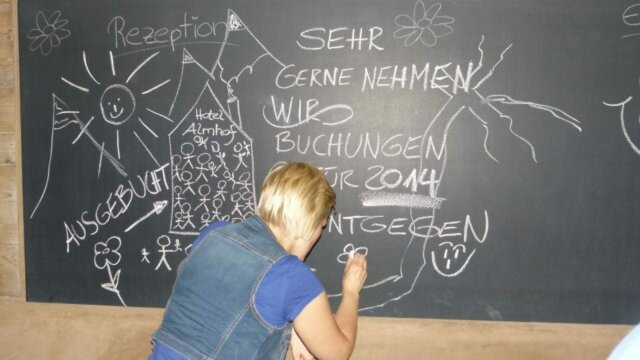 Rezeption
SEHR
GERNE NEHMEN
WIR
BUCHUNGEN
FÜR 2014
ENTGEGEN
Hotel
Almhof
AUSGEBUCHT